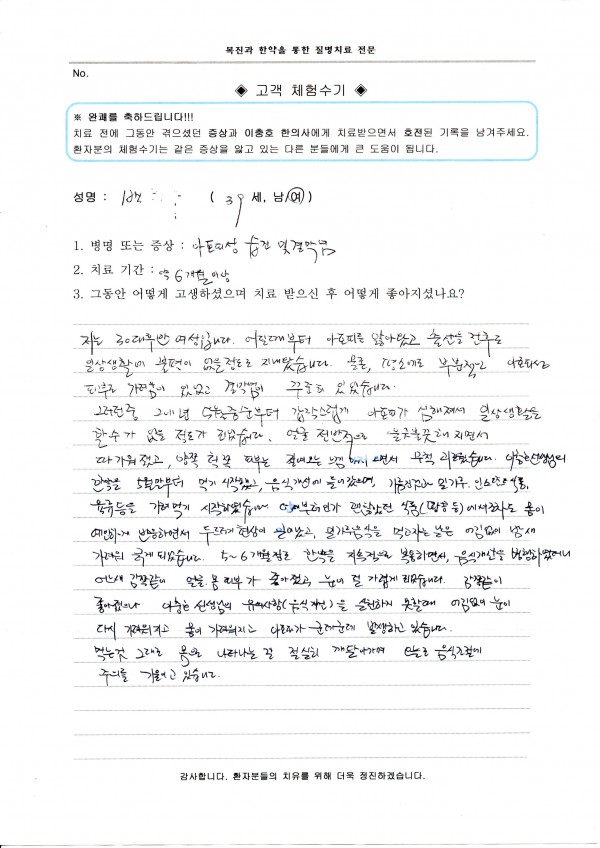 복진과 한약을 통한 질병치료 전문
No.
◈ 고객 체험수기 ◈
※ 완쾌를 축하드립니다!!!
치료 전에 그동안 겪으셨던 증상과 이충호 한의사에게 치료받으면서 호전된 기록을 남겨주세요.
환자분의 체험수기는 같은 증상을 앓고 있는 다른 분들에게 큰 도움이 됩니다.
성명 : ( 39 세, 남/여 )
1. 병명 또는 증상 : 아토피성 습진 및 결막염
2. 치료 기간 : 약 6개월이상
3. 그동안 어떻게 고생하셨으며 치료 받으신 후 어떻게 좋아지셨나요?
저는 30대후반 여성입니다. 어린때부터 아토피를 앓아왔고 출산을 전후로
일상생활에 불편이 없을정도로 지내왔습니다. 물론, 평소에도 부분적인 아토피성
피부와 가려움이 있었고 결막염이 꾸준히 있었습니다.
그러던중 그해년 부터 갑작스럽게 아토피가 심해져서 일상생활을
할수가 없을 정도가 되었습니다. 얼굴 전반적으로 울긋불긋해지면서
따가워졌고, 양쪽 피부는 느낌 면서 무척 괴로웠습니다. 이충호선생님의
한약을 5월말부터 먹기 시작했고, 음식개선에 들어갔으며, 밀가루, 인스턴트식품,
육류등을 가려먹기 시작하였습니다. 괜찮았던 식품 에서조차도 몸이
예민하게 반응하면서 두드러기현상이 일어났고, 밀가루음식을 먹고자는날은 어김없이 밤새
가려워 긁게 되었습니다. 5~6개월정도 한약을 지속적으로 복용하면서, 음식개선을 병행하였더니
어느새 감쪽같이 얼굴 몸 피부가 좋아졌고, 눈이 덜 가렵게 되었습니다. 감쪽같이
좋아졌으나 이충호 선생님의 유의사항(음식개선)을 실천하지 못할때 어김없이 눈이
다시 가려워지고 몸이 가려워지고 아토피가 군데군데 발생하고 있습니다.
먹는것 그대로 몸으로 나타나는 걸 절실히 깨달아가며 오늘도 음식조절에
주의를 기울이고 있습니다.
감사합니다. 환자분들의 치유를 위해 더욱 정진하겠습니다.